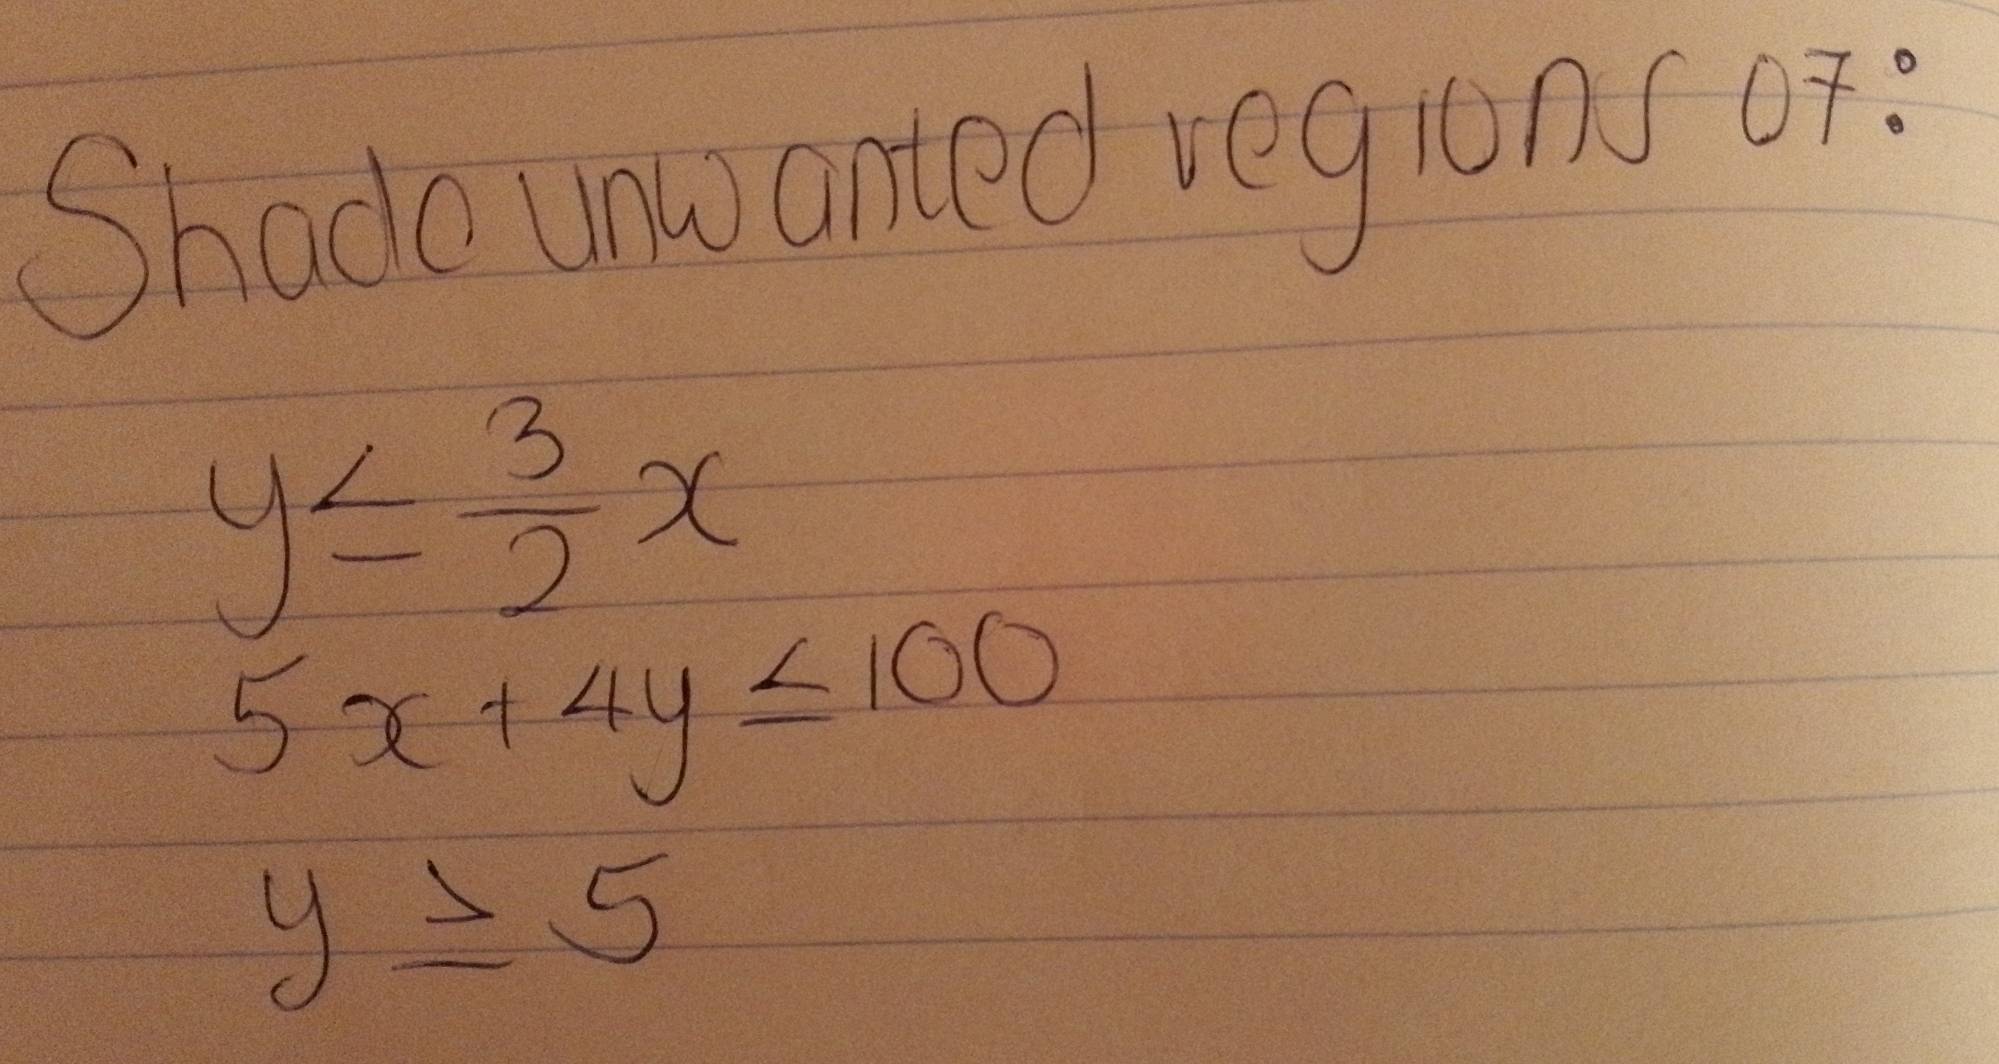 Shade unwanted regions of:
y ≤ 3/2 x
5x + 4y ≤ 100
y ≥ 5